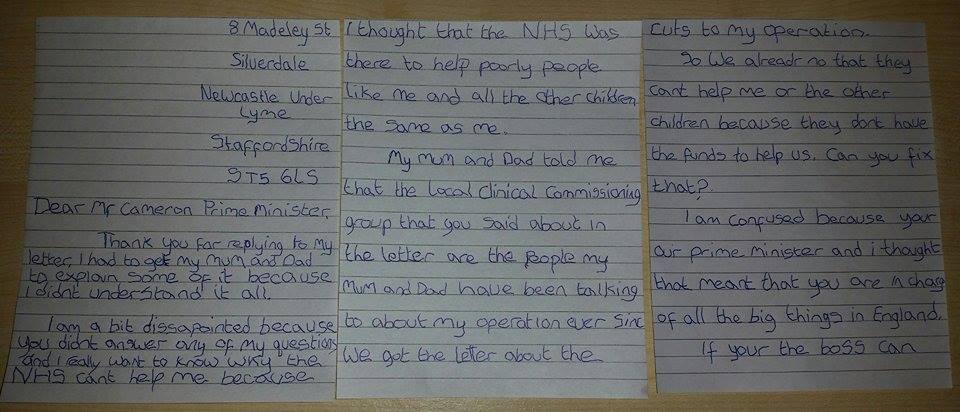 8 Madeley St
Silverdale
Newcastle Under
Lyme
Staffordshire
ST5 6LS
Dear Mr Cameron Prime Minister,
Thank you for replying to my
letter, I had to get my mum and Dad
to explain some of it because
I didnt understand it all.
I am a bit dissapointed because
you didnt answer any of my questions
and I really want to know why the
NHS cant help me because
I thought that the NHS was
there to help poorly people
like me and all the other children
the same as me.
My mum and Dad told me
that the Local Clinical Commissioning
group that you said about in
the letter are the people my
Mum and Dad have been talking
to about my operation ever sinc
we got the letter about the
cuts to my operation.
So We already no that they
cant help me or the other
children because they dont have
the funds to help us. Can you fix
that?
I am confused because your
our prime minister and i thought
that meant that you are in charg
of all the big things in England.
If your the boss can